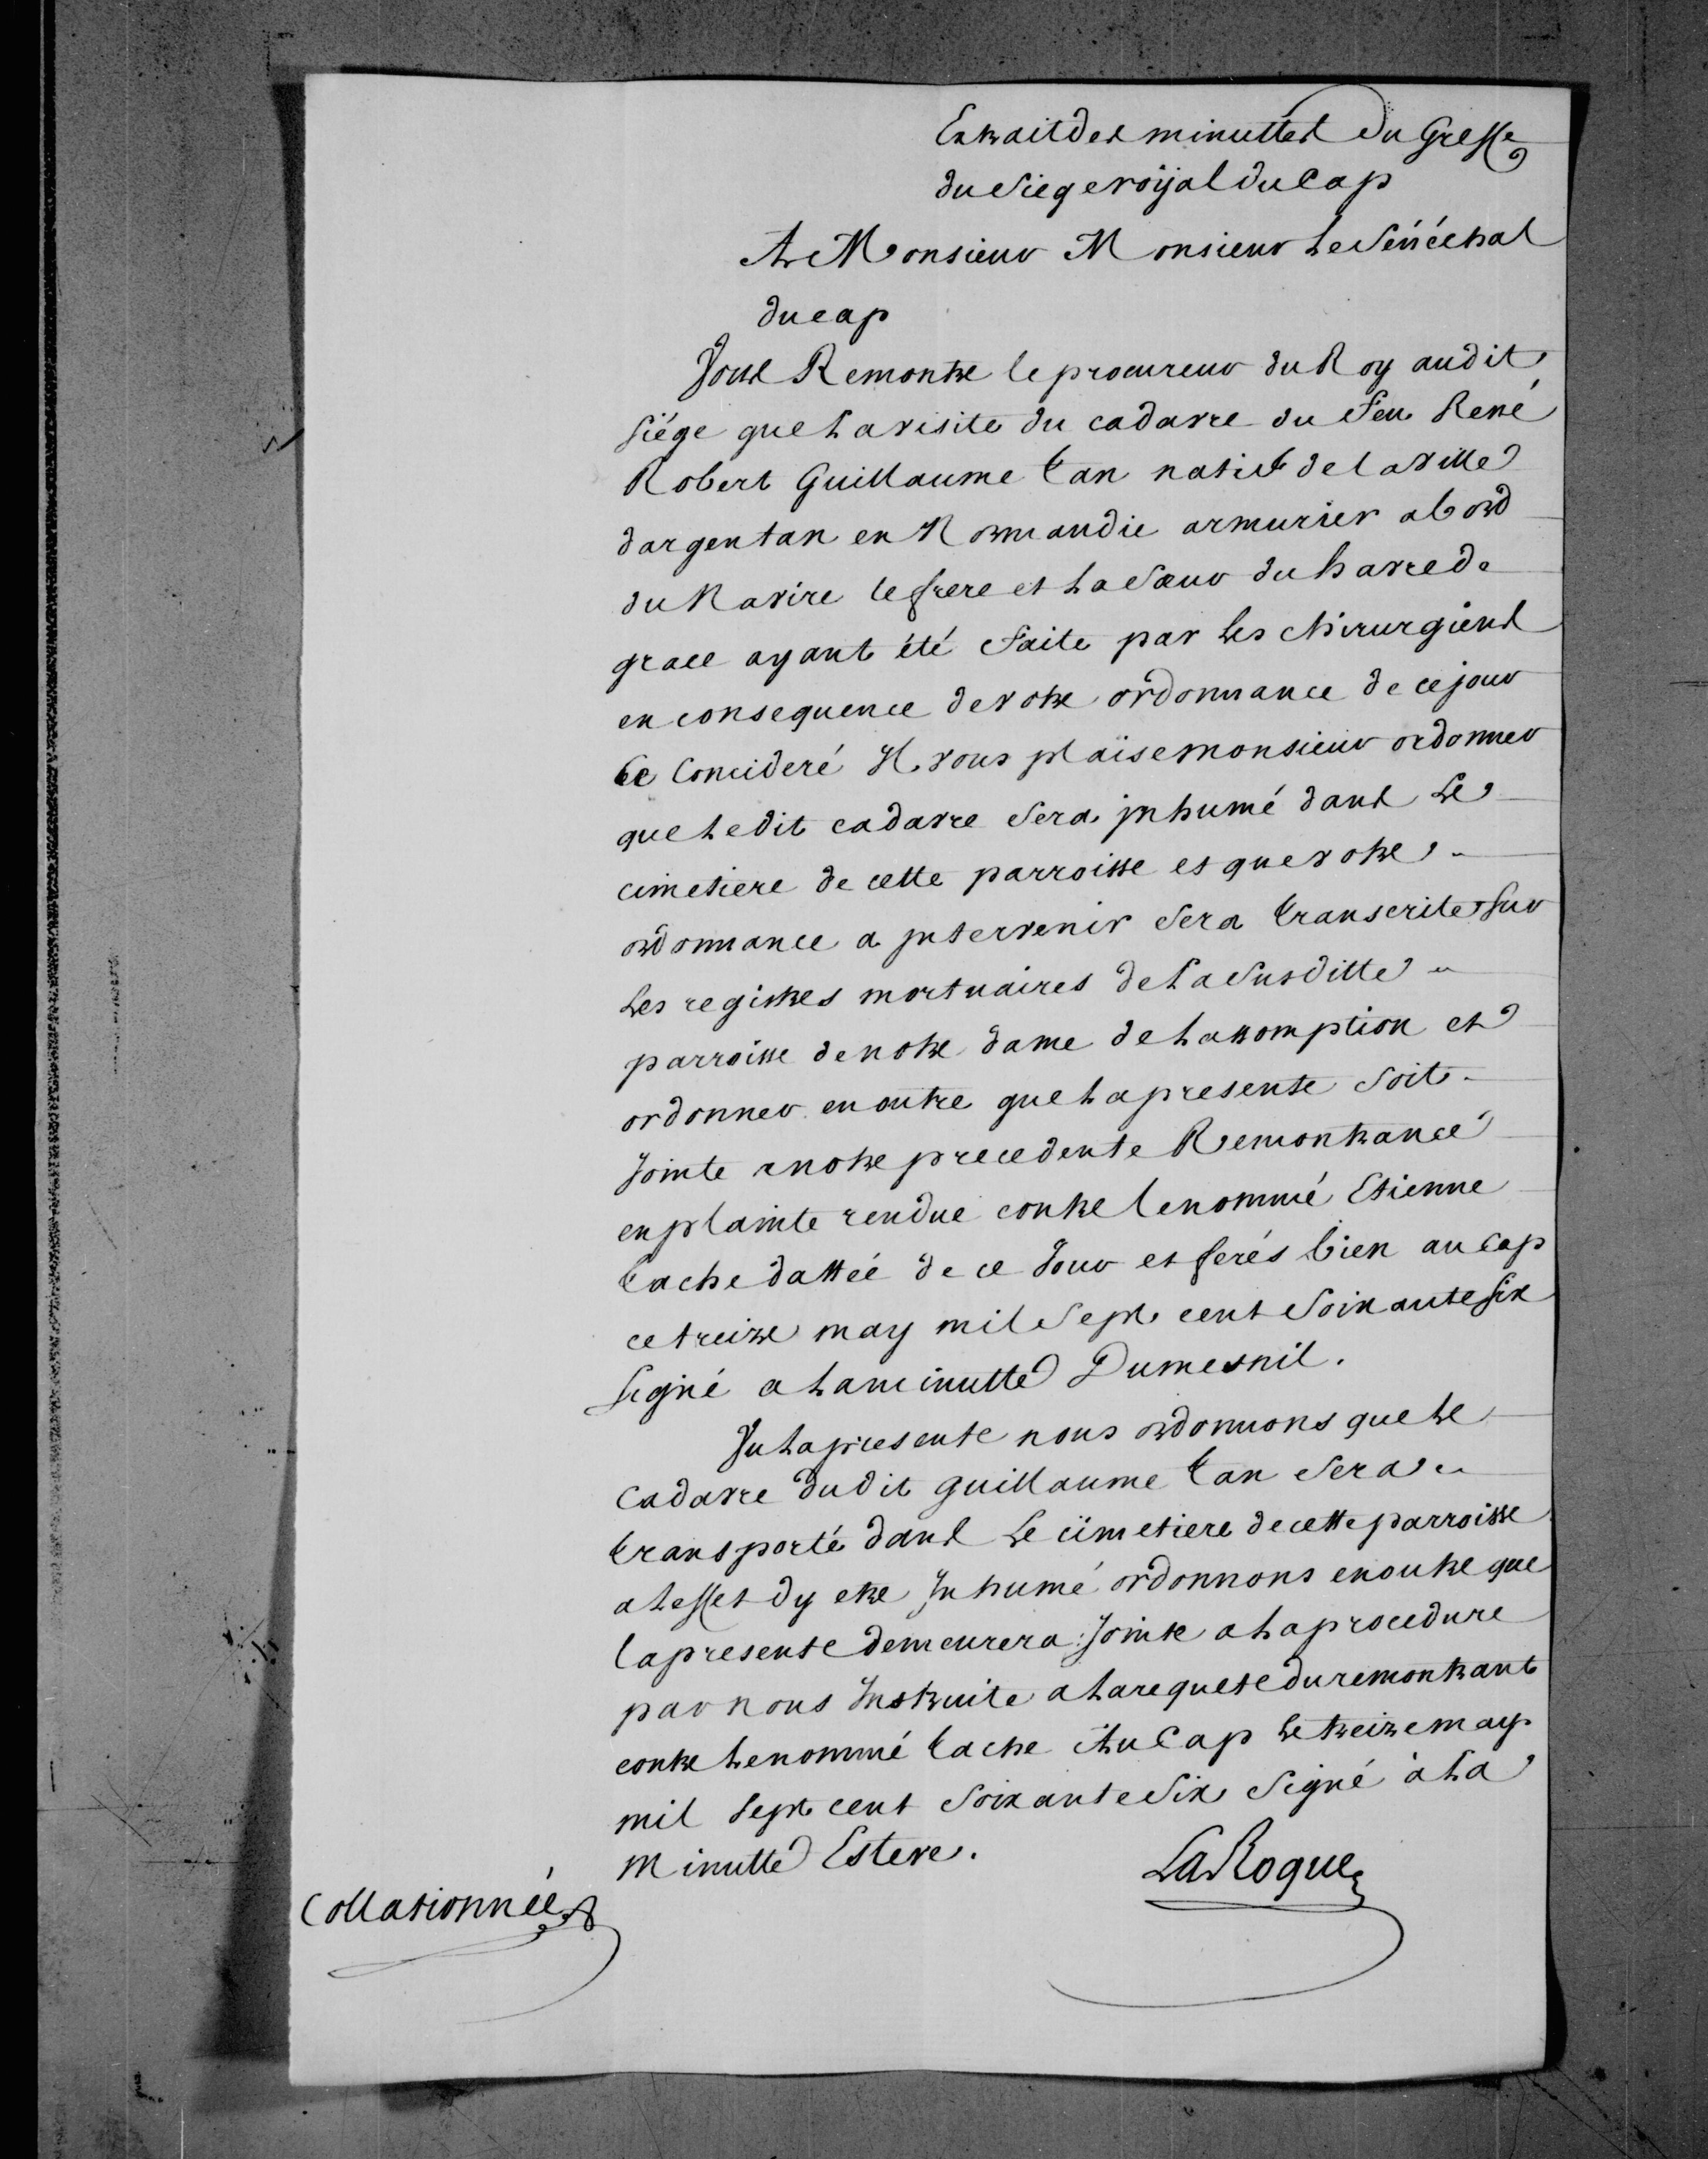 Extrait des minuttes du Greffe
du siege roÿal du Cap
A Monsieur Monsieur Le Sénéchal
du cap
Vous Remontre le procureur du Roy audit
siége que La visite du cadavre du feu René
Robert Guillaume tan natif de la ville
dargentan en Normandie armurier abord
du Navire le frere et La Sœur du havre de
grace ayant été faite par Les chirurgiens
en consequence de votre ordonnance de ce jour
Ce Concideré Il vous plaise monsieur ordonner
que Ledit cadavre Sera jnhumé dans Le
cimetiere de cette parroisse et que votre
ordonnance a jntervenir Sera transcrite sur
Les registres mortuaires de La Susditte
parroisse de notre dame de Lassomption et
ordonner en outre que La presente Soit
Jointe a notre precedente Remontrance
en plainte rendue contre le nommé Etienne
tache dattée de ce Jour et ferés bien au Cap
ce treize may mil Sept cent Soixante six
signé a La minutte Dumesnil.
Vu La presente nous ordonnons que Le
Cadavre dudit guillaume tan Sera
transporté dans Le cimetiere de cette parroisse
a Leffet dy etre Jnhumé ordonnons en outre que
la presente demeurera Jointe a La procedure
par nous Instruite a La requete du remontrant
contre Le nommé tache Au Cap Le treize may
mil Sept cent Soixante Six Signé à La
Minutte Esteve.
LaRoque
Collationnée